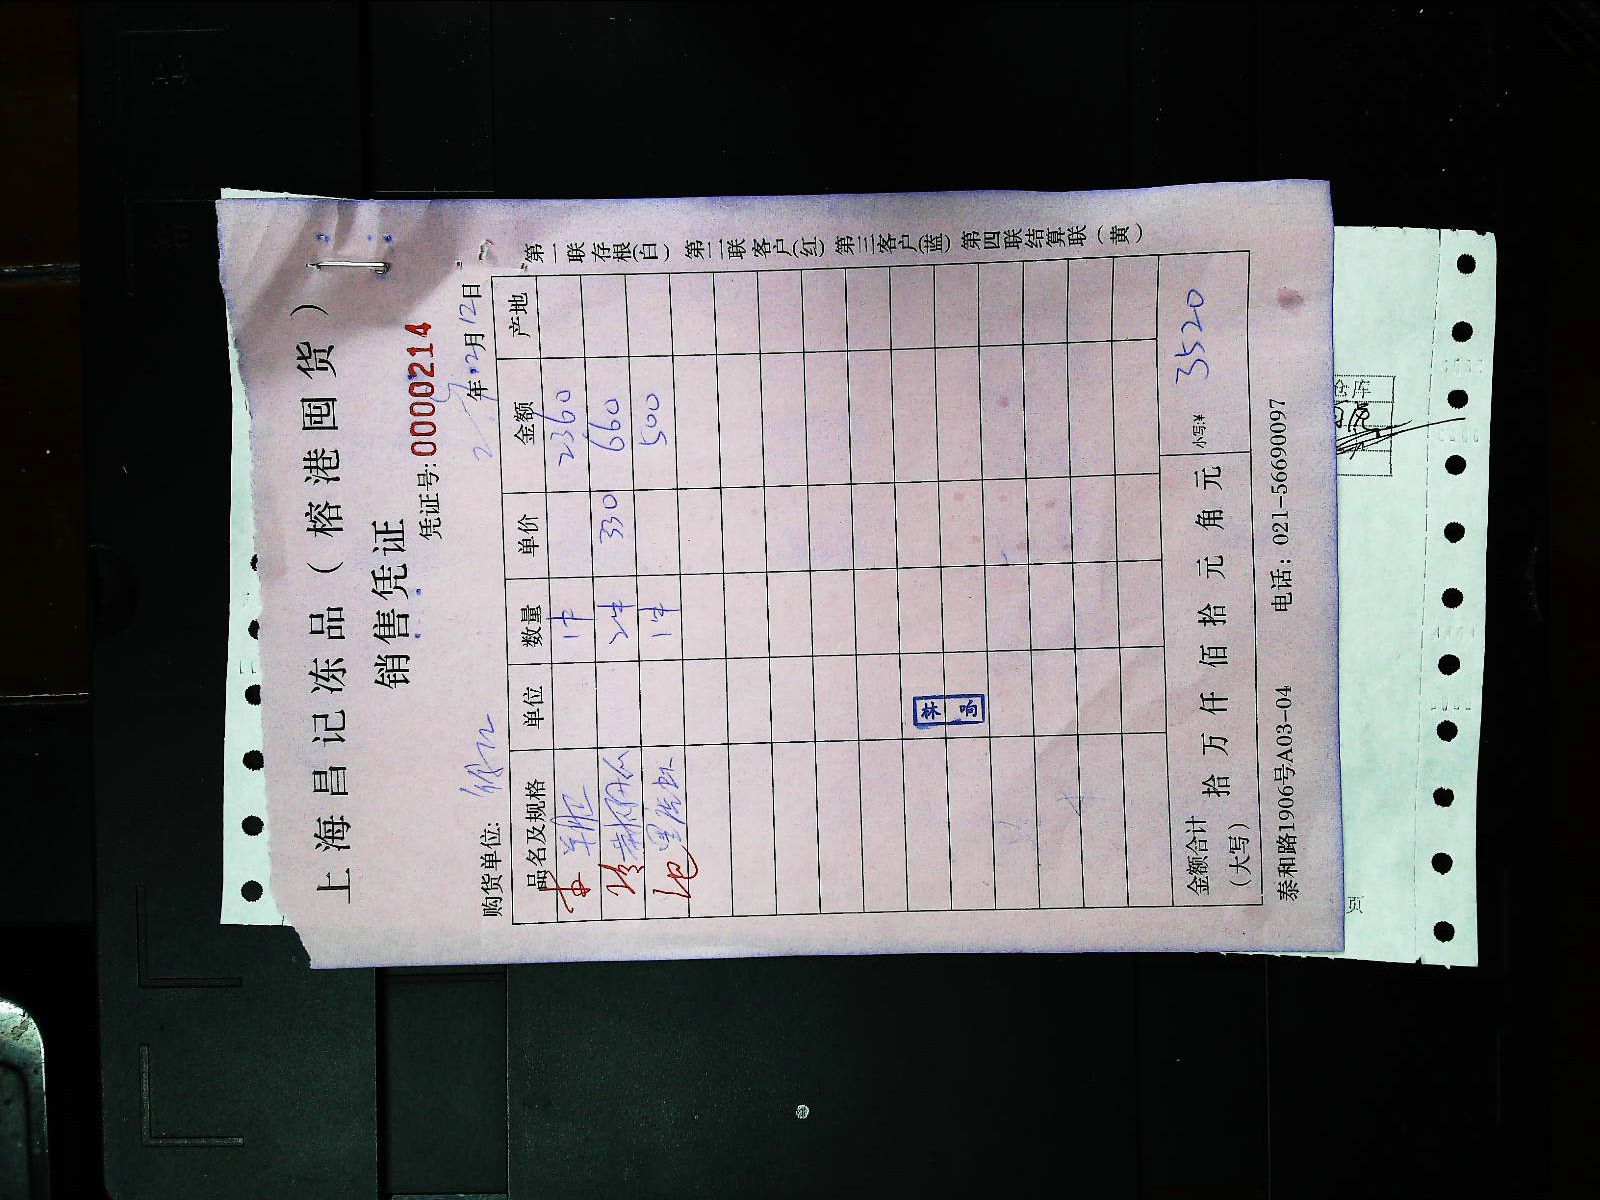 上海昌记冻品（榕港囤货）
销售凭证
凭证号:0000214
购货单位:
年 2月12日
品名及规格 单位 数量 单价 金额 产地
1件 2360
2件 330 660
1件 500
林响
金额合计（大写） 拾 万 仟 佰 拾 元 角 元 小写:¥ 3520
泰和路1906号A03-04 电话: 021-56690097
第一联存根(白) 第二联客户(红) 第三客户(蓝) 第四联结算联(黄)
仓库
页